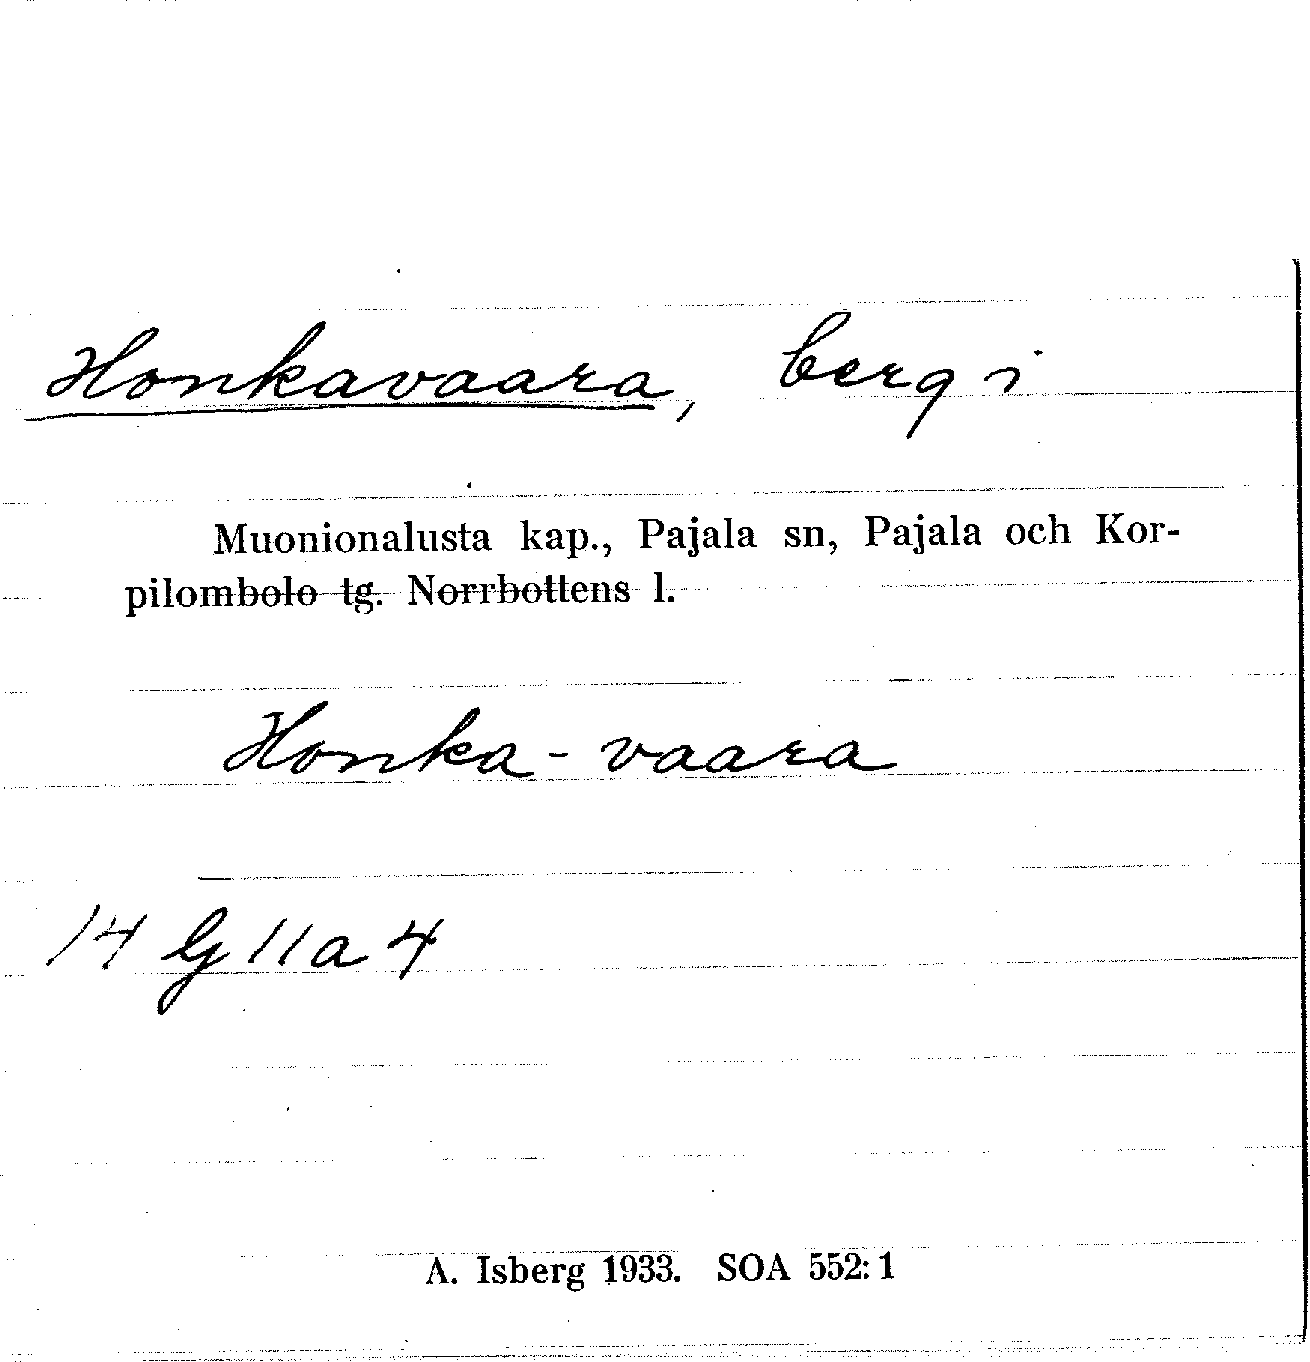 Honkavaara, berg i
Muonionalusta kap., Pajala sn, Pajala och Kor-
pilombolo tg. Norrbottens l.
Honka - vaara
14 G 11 a 4
A. Isberg 1933. SOA 552:1